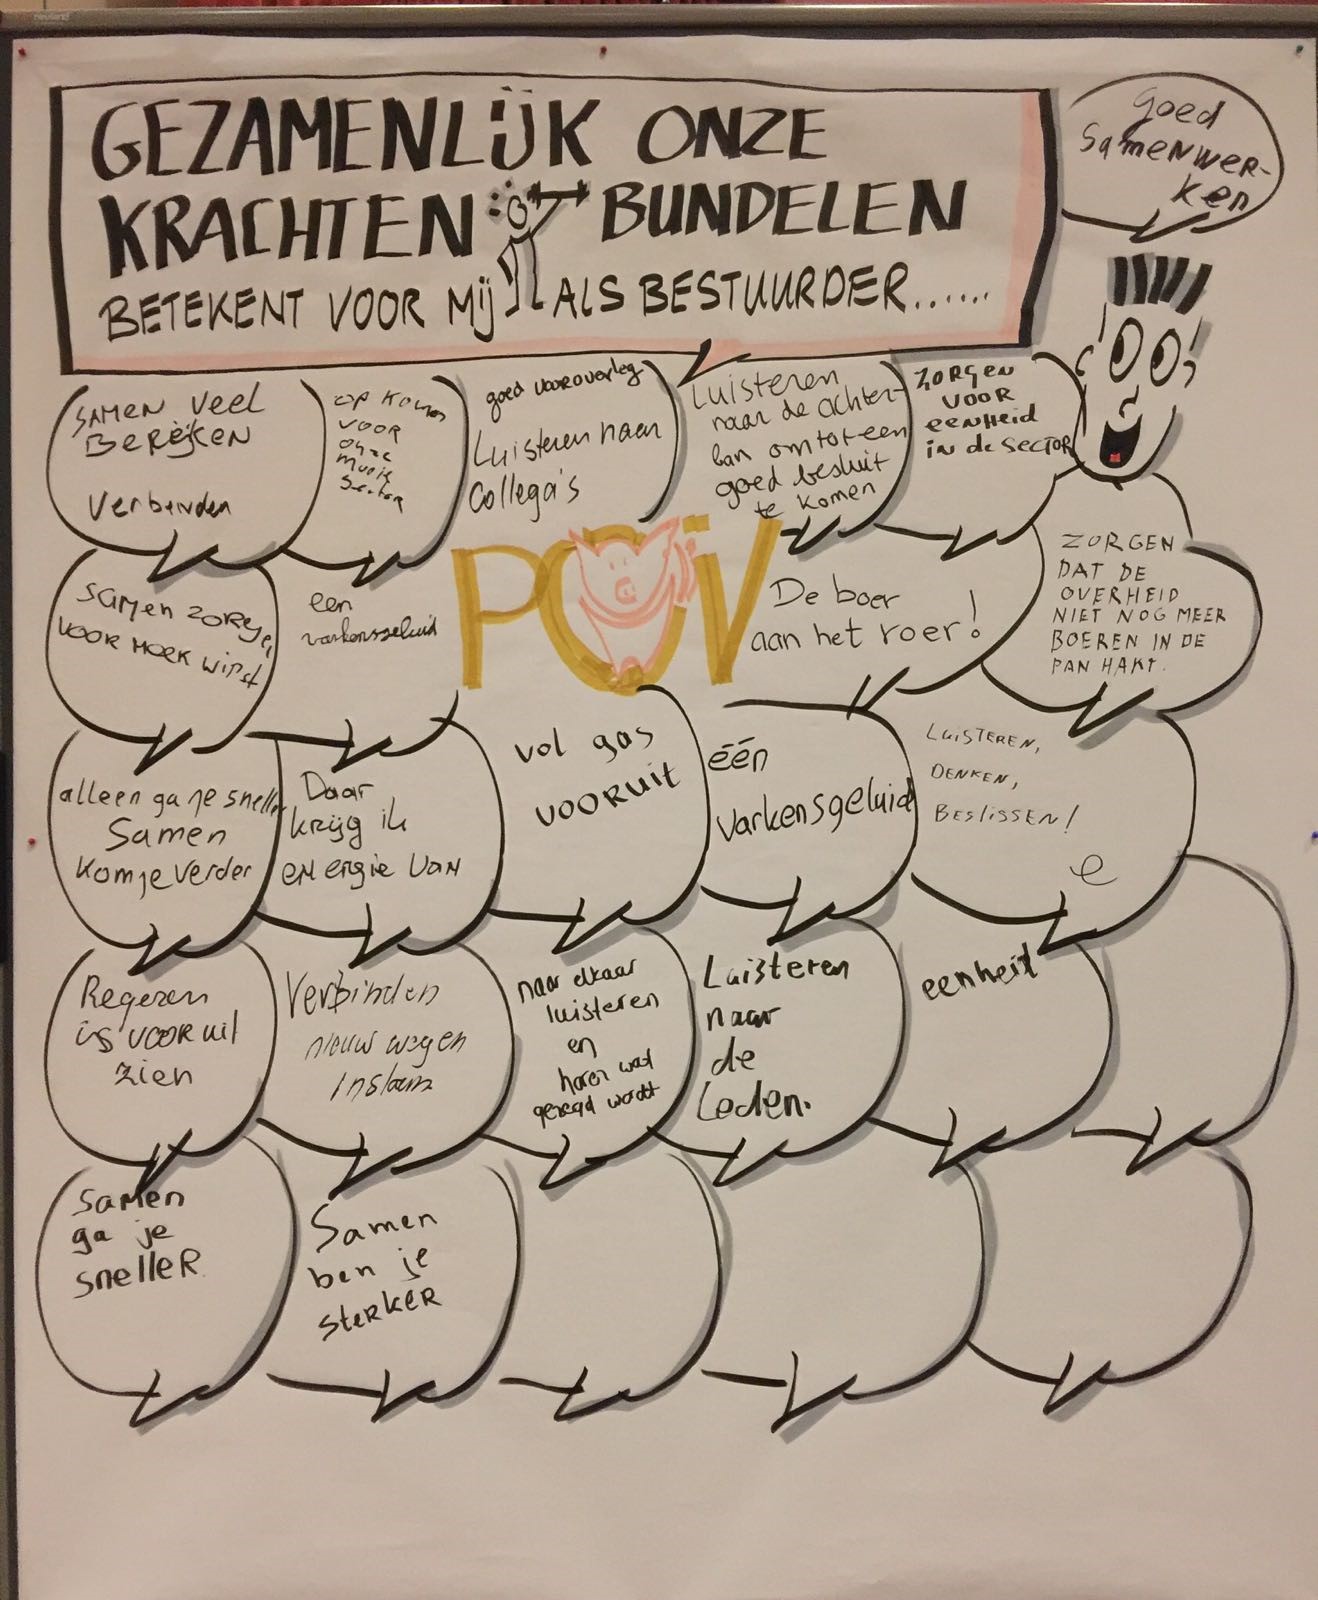 GEZAMENLIJK ONZE
KRACHTEN BUNDELEN
BETEKENT VOOR MIJ ALS BESTUURDER......
Goed
SAMENWER-
KEN
SAMEN VEEL
BEREIKEN
Verbinden
OP KOMEN
VOOR
onze
mooie
Sector
goed vooroverleg
Luisteren naar
Collega's
Luisteren
naar de achter-
ban om tot een
goed besluit
te komen
ZORGEN
VOOR
eenheid
in de SECTOR
SAMEN ZORGEN
VOOR MOEK WIPST
een
varkensgeluid
POV
De boer
aan het roer!
ZORGEN
DAT DE
OVERHEID
NIET NOG MEER
BOEREN IN DE
PAN HAKT.
alleen ga je sneller
Samen
kom je verder
Daar
krijg ik
energie van
vol gas
vooruit
één
varkensgeluid
LUISTEREN,
DENKEN,
BESLISSEN!
e
Regeren
is vooruit
zien
Verbinden
nieuw wegen
naar elkaar
luisteren
en
horen wat
gezegd wordt
Luisteren
naar
de
Leden.
eenheid
Samen
ga je
sneller
Samen
ben je
sterker